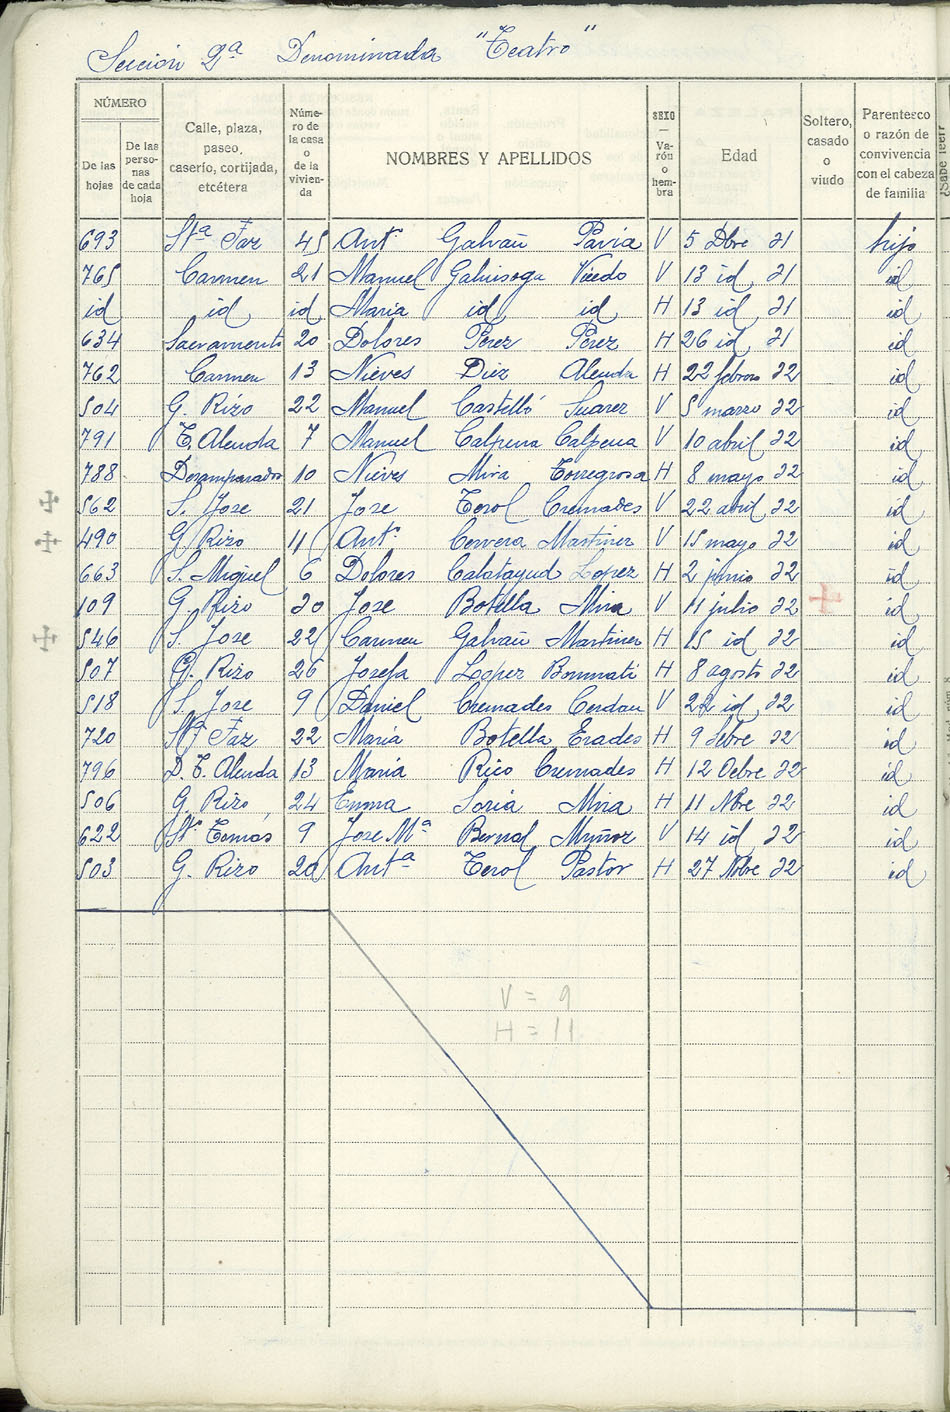 Sección 2ª Denominada "Teatro"
NÚMERO
De las hojas
De las perso-nas de cada hoja
Calle, plaza, paseo, caserío, cortijada, etcétera
Núme-ro de la casa o de la vivien-da
NOMBRES Y APELLIDOS
SEXO — Va-rón o hem-bra
Edad
Soltero, casado o viudo
Parentesco o razón de convivencia con el cabeza de familia
¿Sabe leer?
693 Stª Faz 45 Antº Galvañ Pavia V 5 Dbre 21 hijo
765 Carmen 21 Manuel Galiisoga V 13 id 21 id
id id id Maria id id H 13 id 21 id
634 Sacramento 20 Dolores Perez Perez H 26 id 21 id
762 Carmen 13 Nieves Diez Alenda H 22 febrero 22 id
504 G. Rizo 22 Manuel Castelló Suarez V 5 marzo 22 id
791 T. Alenda 7 Manuel Calpena Calpena V 10 abril 22 id
788 Desamparados 10 Nieves Mira Torregrosa H 8 mayo 22 id
562 S. Jose 21 Jose Terol Cremades V 22 abril 22 id
490 G. Rizo 11 Antº Cervera Martinez V 15 mayo 22 id
663 S. Miguel 6 Dolores Calatayud Lopez H 2 junio 22 id
109 G. Rizo 20 Jose Botella Mira V 11 julio 22 id
546 S. Jose 22 Carmen Galvañ Martinez H 15 id 22 id
507 G. Rizo 26 Josefa Lopez Bonmati H 8 agosto 22 id
518 S. Jose 9 Daniel Cremades Cerdan V 22 id 22 id
720 Stª Faz 22 Maria Botella Erades H 9 Sbre 22 id
796 D. T. Alenda 13 Maria Rico Cremades H 12 Ocbre 22 id
506 G. Rizo 24 Emma Soria Mira H 11 Nbre 22 id
622 Stº Tomás 9 Jose Mª Bernal Muñoz V 14 id 22 id
503 G. Rizo 20 Antª Terol Pastor H 27 Nbre 22 id
V = 9
H = 11